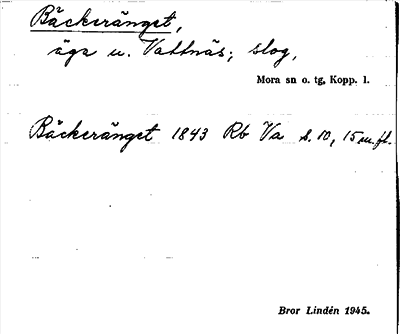 Bäckeränget,
äga u. Vattnäs; slog,
Mora sn o. tg, Kopp. l.
Bäckeränget 1843 Rb Va s. 10, 15 m. fl.
Bror Lindén 1945.